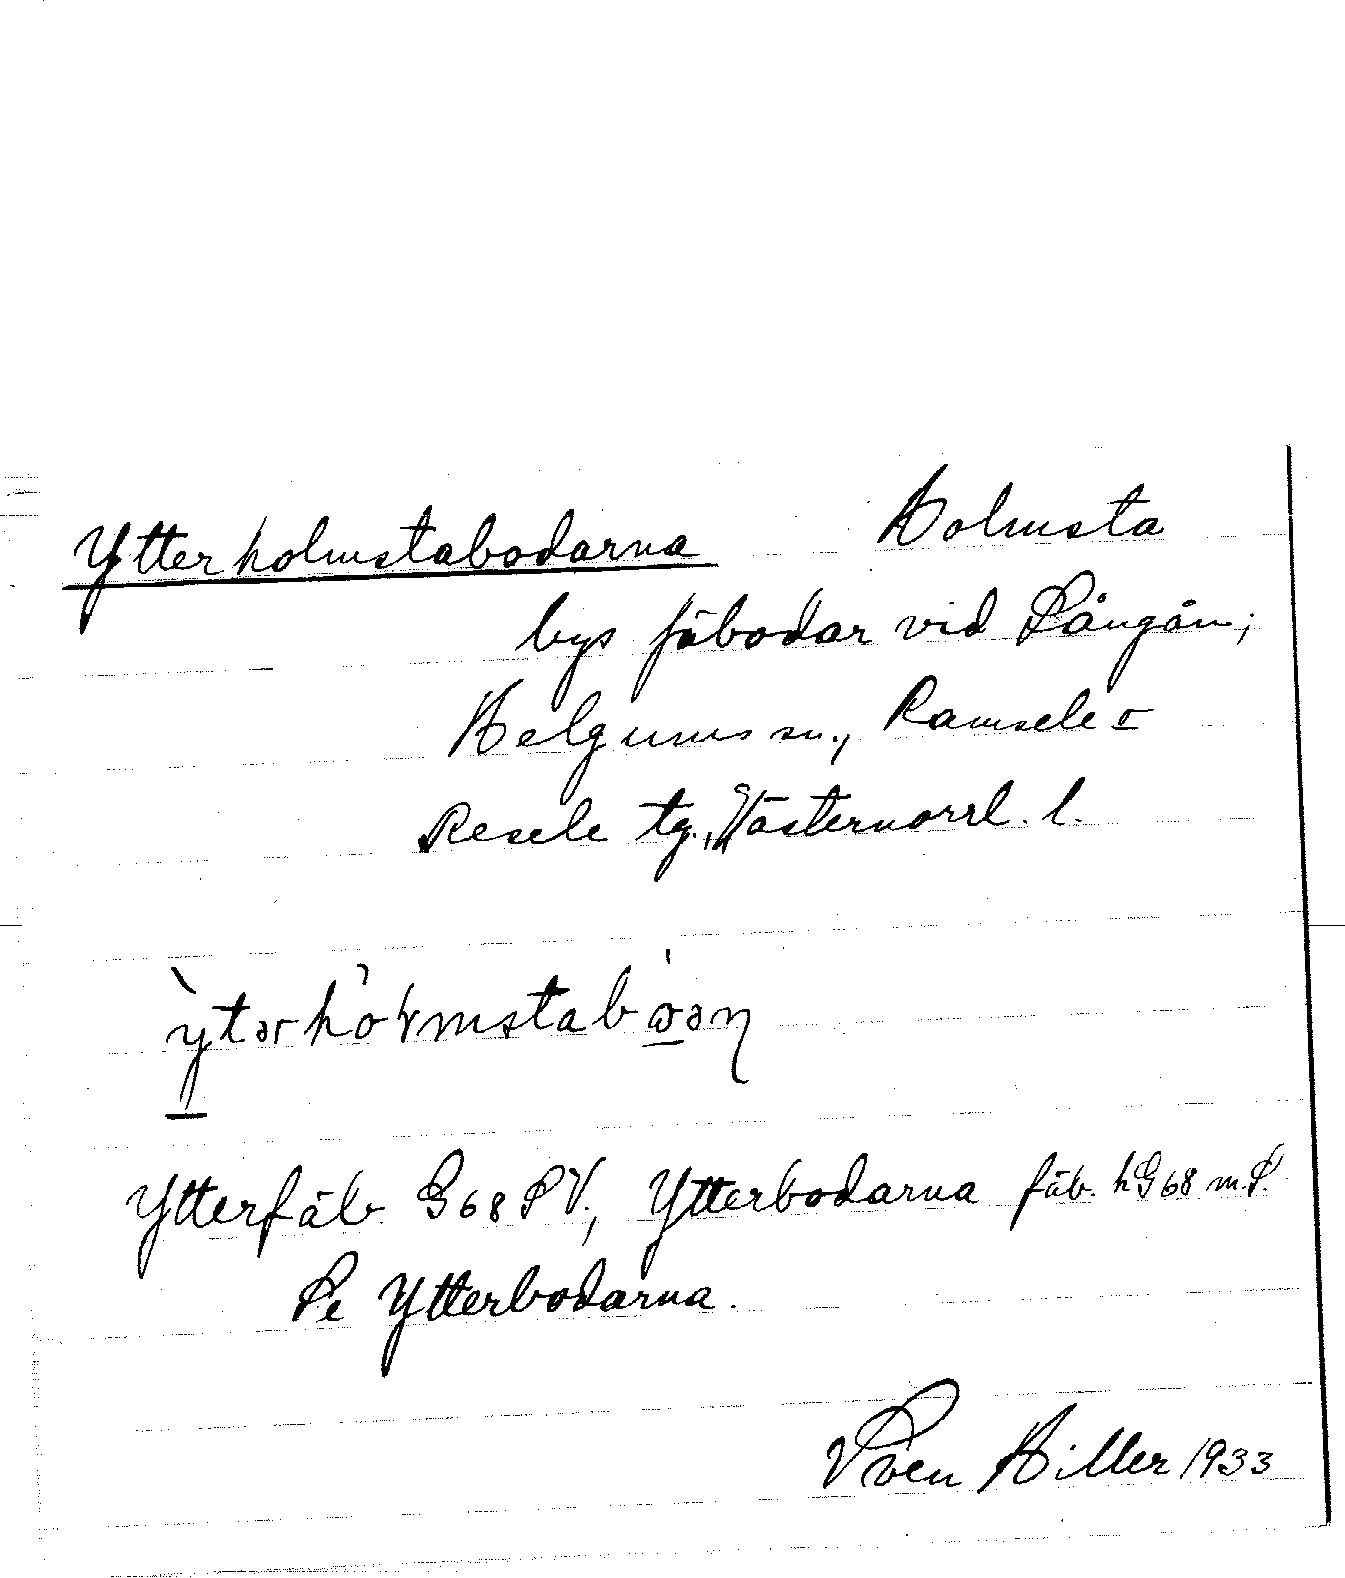 Ytterholmstabodarna Holmsta
bys fäbodar vid Långån;
Helgums sn., Ramsele o
Resele tg., Västernorrl. l.
Ytterfäb. G68 SV., Ytterbodarna fäb. hG68 m.S.
Se Ytterbodarna.
Sven Hiller 1933